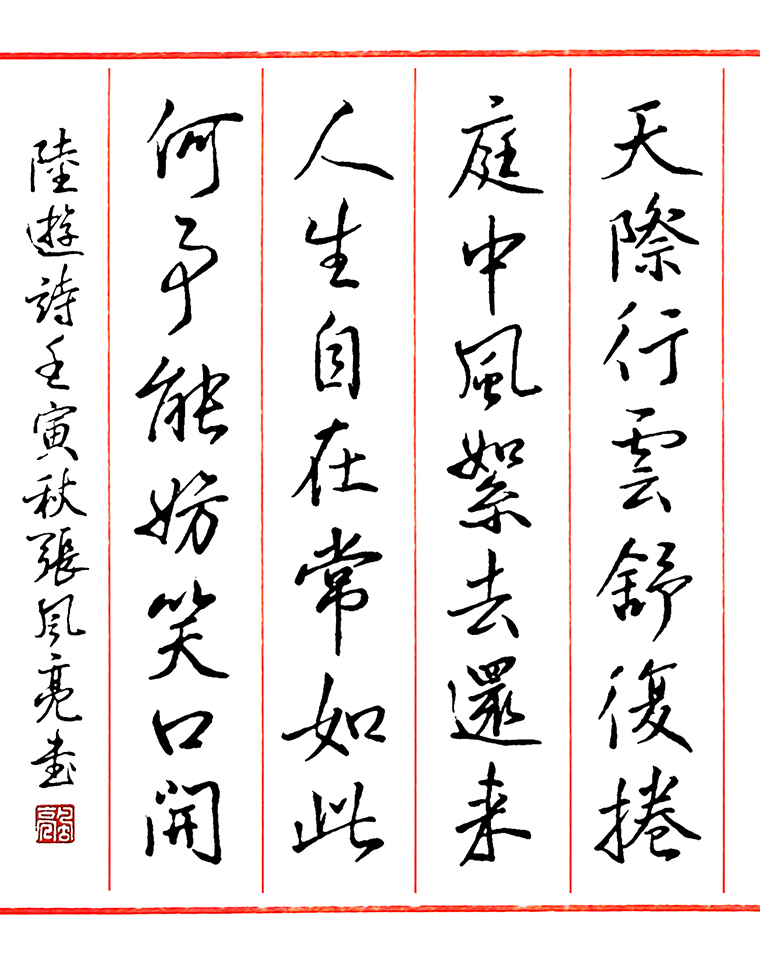 天際行雲舒復捲
庭中風絮去還来
人生自在常如此
何事能妨笑口開
陸遊詩壬寅秋張風亮書